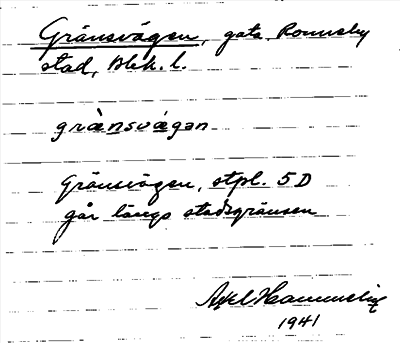 Gränsvägen, gata Ronneby
stad, Blek. l.
grä̀nsvä̀gan
Gränsvägen, stpl. 5 D
går längs stadsgränsen
Axel
1941